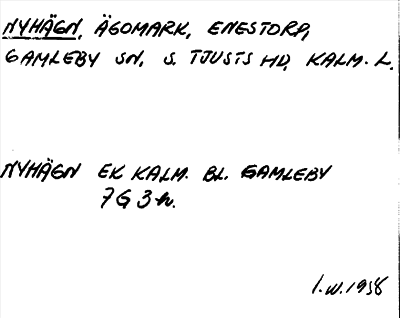 NYHÄGN, ÄGOMARK, ENESTORP,
GAMLEBY SN, S. TJUSTS HD, KALM. L.
NYHÄGN EK KALM. BL. GAMLEBY
7G 3h.
I.W. 1958